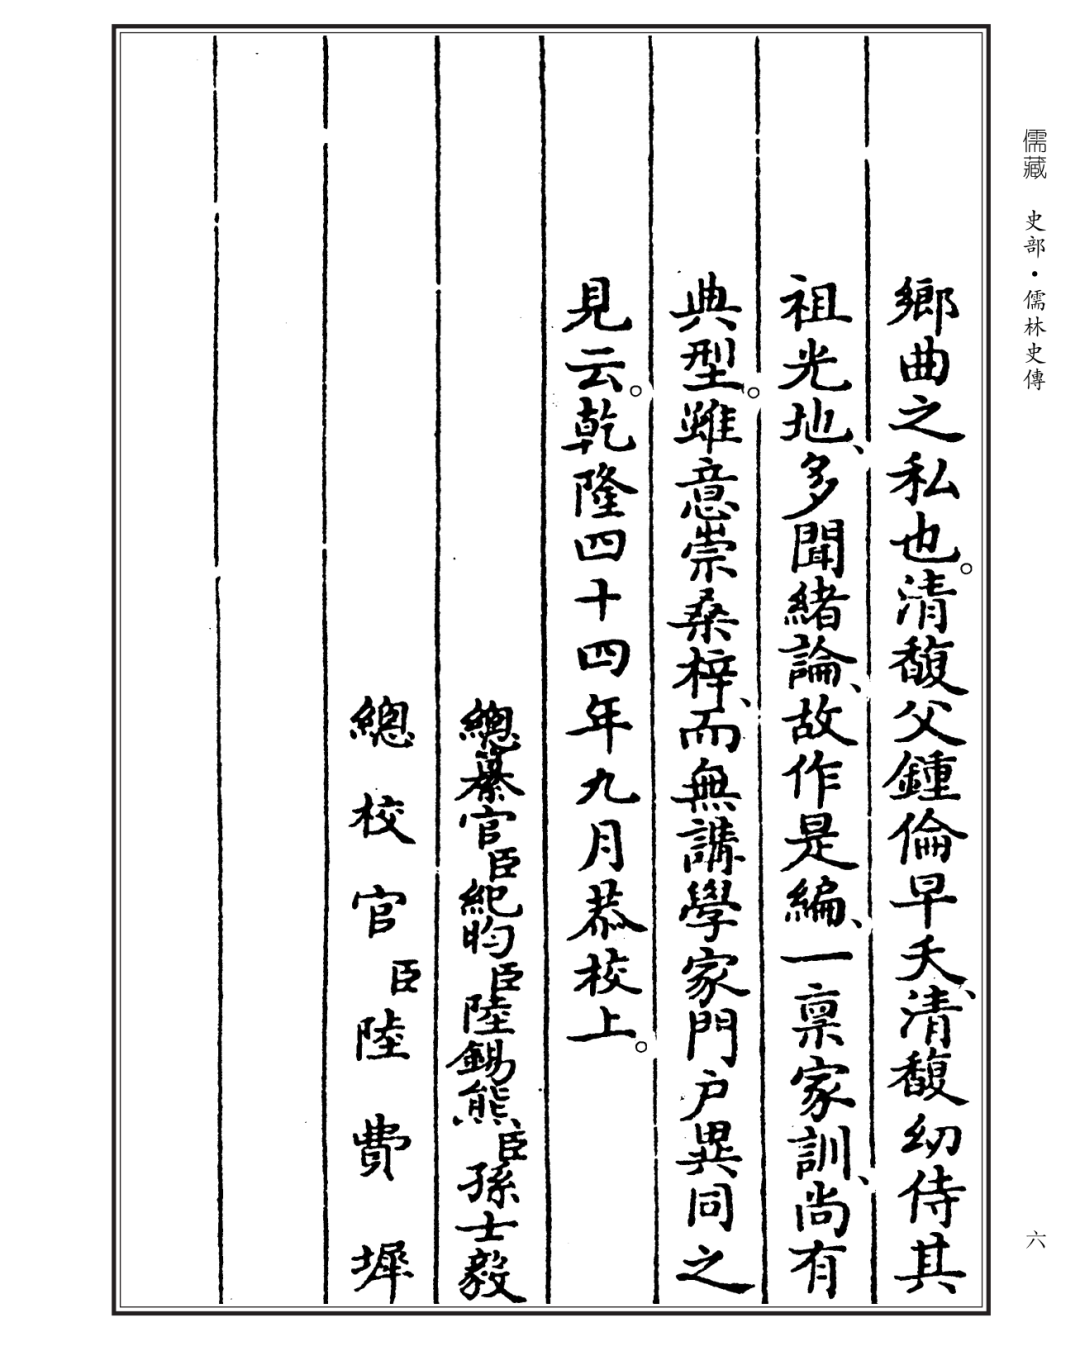 儒藏 史部·儒林史傳
鄉曲之私也。清馥父鍾倫早夭、清馥幼侍其
祖光地、多聞緒論、故作是編、一禀家訓、尚有
典型。雖意崇桑梓、而無講學家門户異同之
見云。乾隆四十四年九月恭校上。
總纂官臣紀昀臣陸錫熊臣孫士毅
總校官臣陸費墀
六